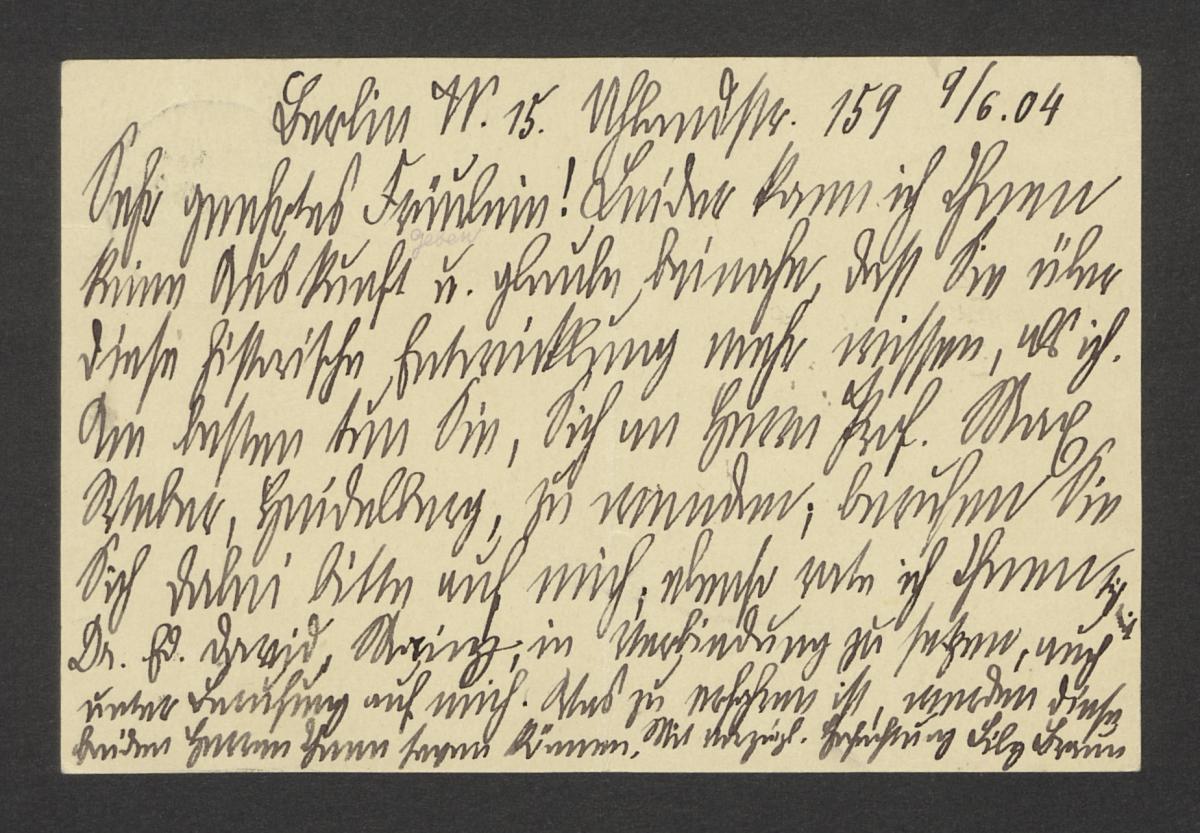 Berlin W. 15. Uhlandstr. 159 9/6.04
Sehr geehrtes Fräulein! Leider kann ich Ihnen
geben
keine Auskunft u. glaube beinahe, daß Sie über
diese historische Entwicklung mehr wissen, als ich.
Am besten tun Sie, Sich an Herrn Prof. Max
Weber, Heidelberg, zu wenden; berufen Sie
Sich dabei bitte auf mich; ebenso rate ich Ihnen, sich mit
Dr. Ed. David, Mainz, in Verbindung zu setzen, auch
unter Berufung auf mich. Was zu erfahren ist, werden diese
beiden Herren Ihnen sagen können. Mit vorzügl. Hochachtung Lily Braun